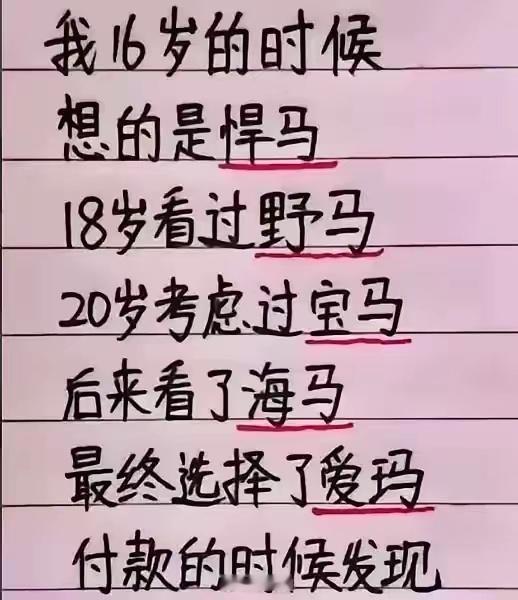 我16岁的时候
想的是悍马
18岁看过野马
20岁考虑过宝马
后来看了海马
最终选择了爱玛
付款的时候发现